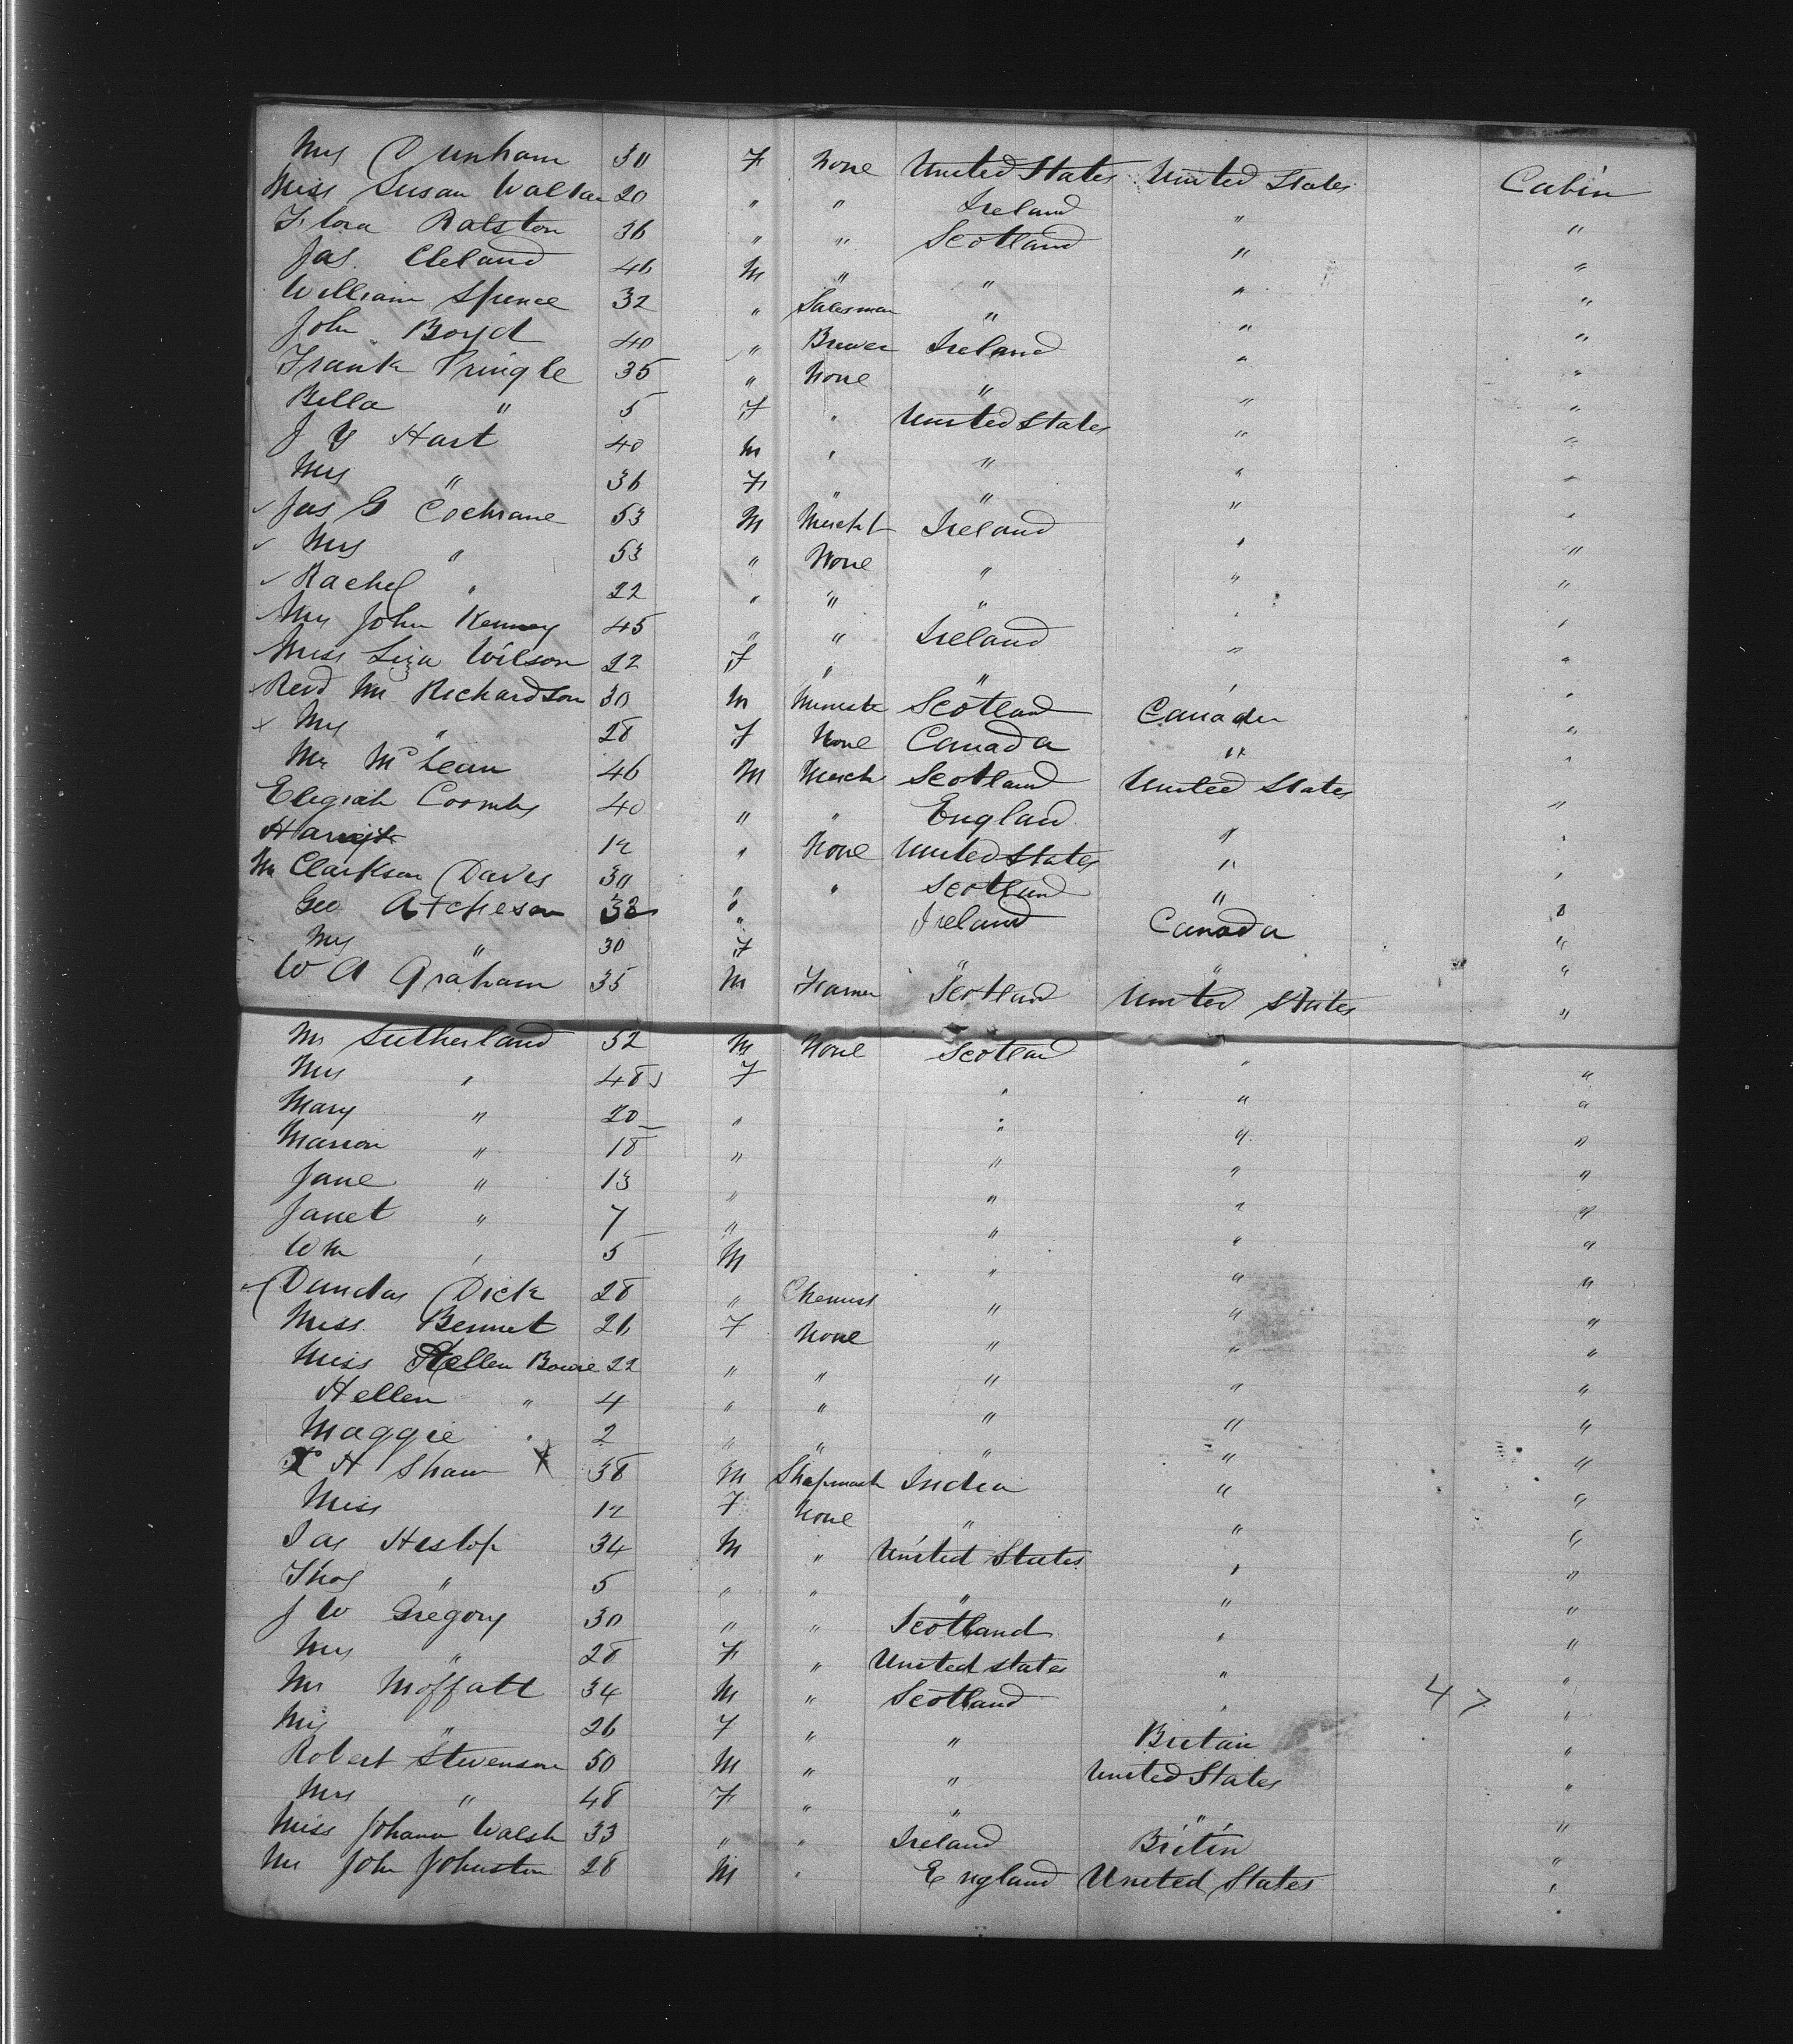 Mrs Dunham 30 F None United States United States Cabin
Miss Susan Walker 20 " " Ireland " "
Flora Ralston 36 " " Scotland " "
Jas. Cleland 46 M " " " "
William Spence 32 " Salesman " " "
John Boyd 40 " Brewer Ireland " "
Frank Pringle 35 " None " " "
Bella " 5 F " United States " "
J Y Hart 40 M " " " "
Mrs " 36 F " " " "
Jas G Cochrane 53 M Mercht Ireland " "
Mrs " 53 " None " " "
Rachel " 22 " " " " "
John Kenney 45 " " Ireland " "
Miss Liza Wilson 22 F " " " "
Revd Mr Richardson 30 M Ministe Scotland Canada "
Mrs " 28 F None Canada " "
Mr McLean 46 M Merch Scotland United States "
Elegiah Coombs 40 " " England " "
Harriet 12 " None United States " "
Mr Clarkson Davis 30 " " Scotland " "
Geo Atcheson 32 " Ireland Canada "
Mrs " 30 F " " "
W A Graham 35 M Farmer Scotland United States "
Mr Sutherland 52 M None Scotland " "
Mrs " 48 F " " "
Mary " 20 " " " "
Marion " 18 " " " "
Jane " 13 " " " "
Janet " 7 " " " "
Wm " 5 M " " "
Dundas Dick 28 " Chemist " " "
Miss Bennet 26 F None " " "
Miss Hellen Bowie 22 " " " " "
Hellen " 4 " " " " "
Maggie " 2 " " " " "
H Shaw 38 M Shipmast India " "
Miss 12 F None " " "
Jas Heslop 34 M " United States " "
Thos " 5 " " " " "
J W Gregory 30 " " Scotland " "
Mrs " 28 F " United States " "
Mr Moffatt 34 M " Scotland " 47 "
Mrs " 26 F " " Britain "
Robert Stevenson 50 M " " United States "
Mrs " 48 F " " " "
Miss Johana Walsh 33 " " Ireland Britin "
Mr John Johnston 28 M " England United States "